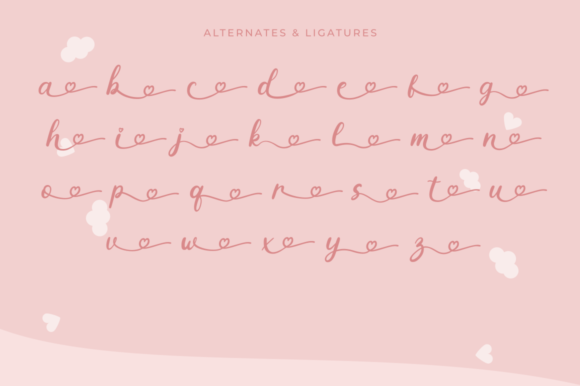 ALTERNATES & LIGATURES
a b c d e f g
h i j k l m n
o p q r s t u
v w x y z